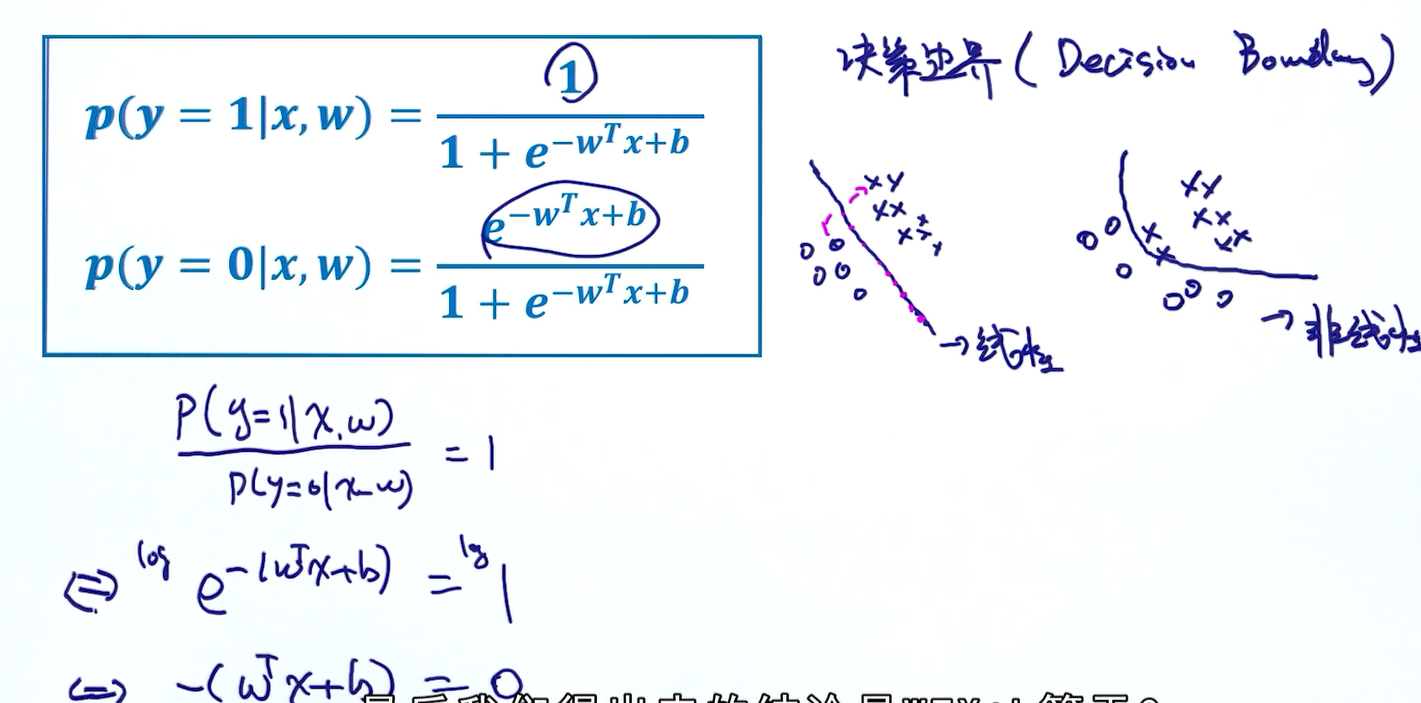 p(y = 1|x, w) = 1 / (1 + e^{-w^T x+b})
p(y = 0|x, w) = e^{-w^T x+b} / (1 + e^{-w^T x+b})
决策边界 ( Decision Boundary )
→ 线性
→ 非线性
P(y=1|x,w) / P(y=0|x,w) = 1
⇔ log e^{-(w^T x+b)} = log 1
⇔ -(w^T x+b) = 0